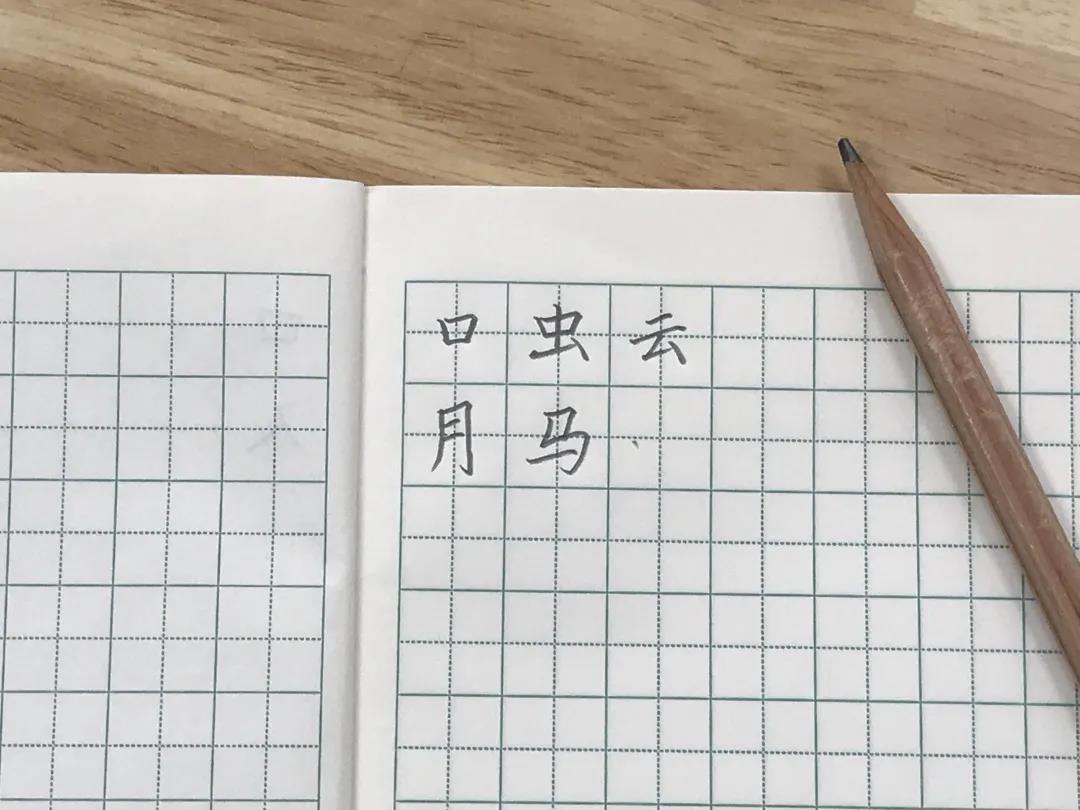 口虫云
月马